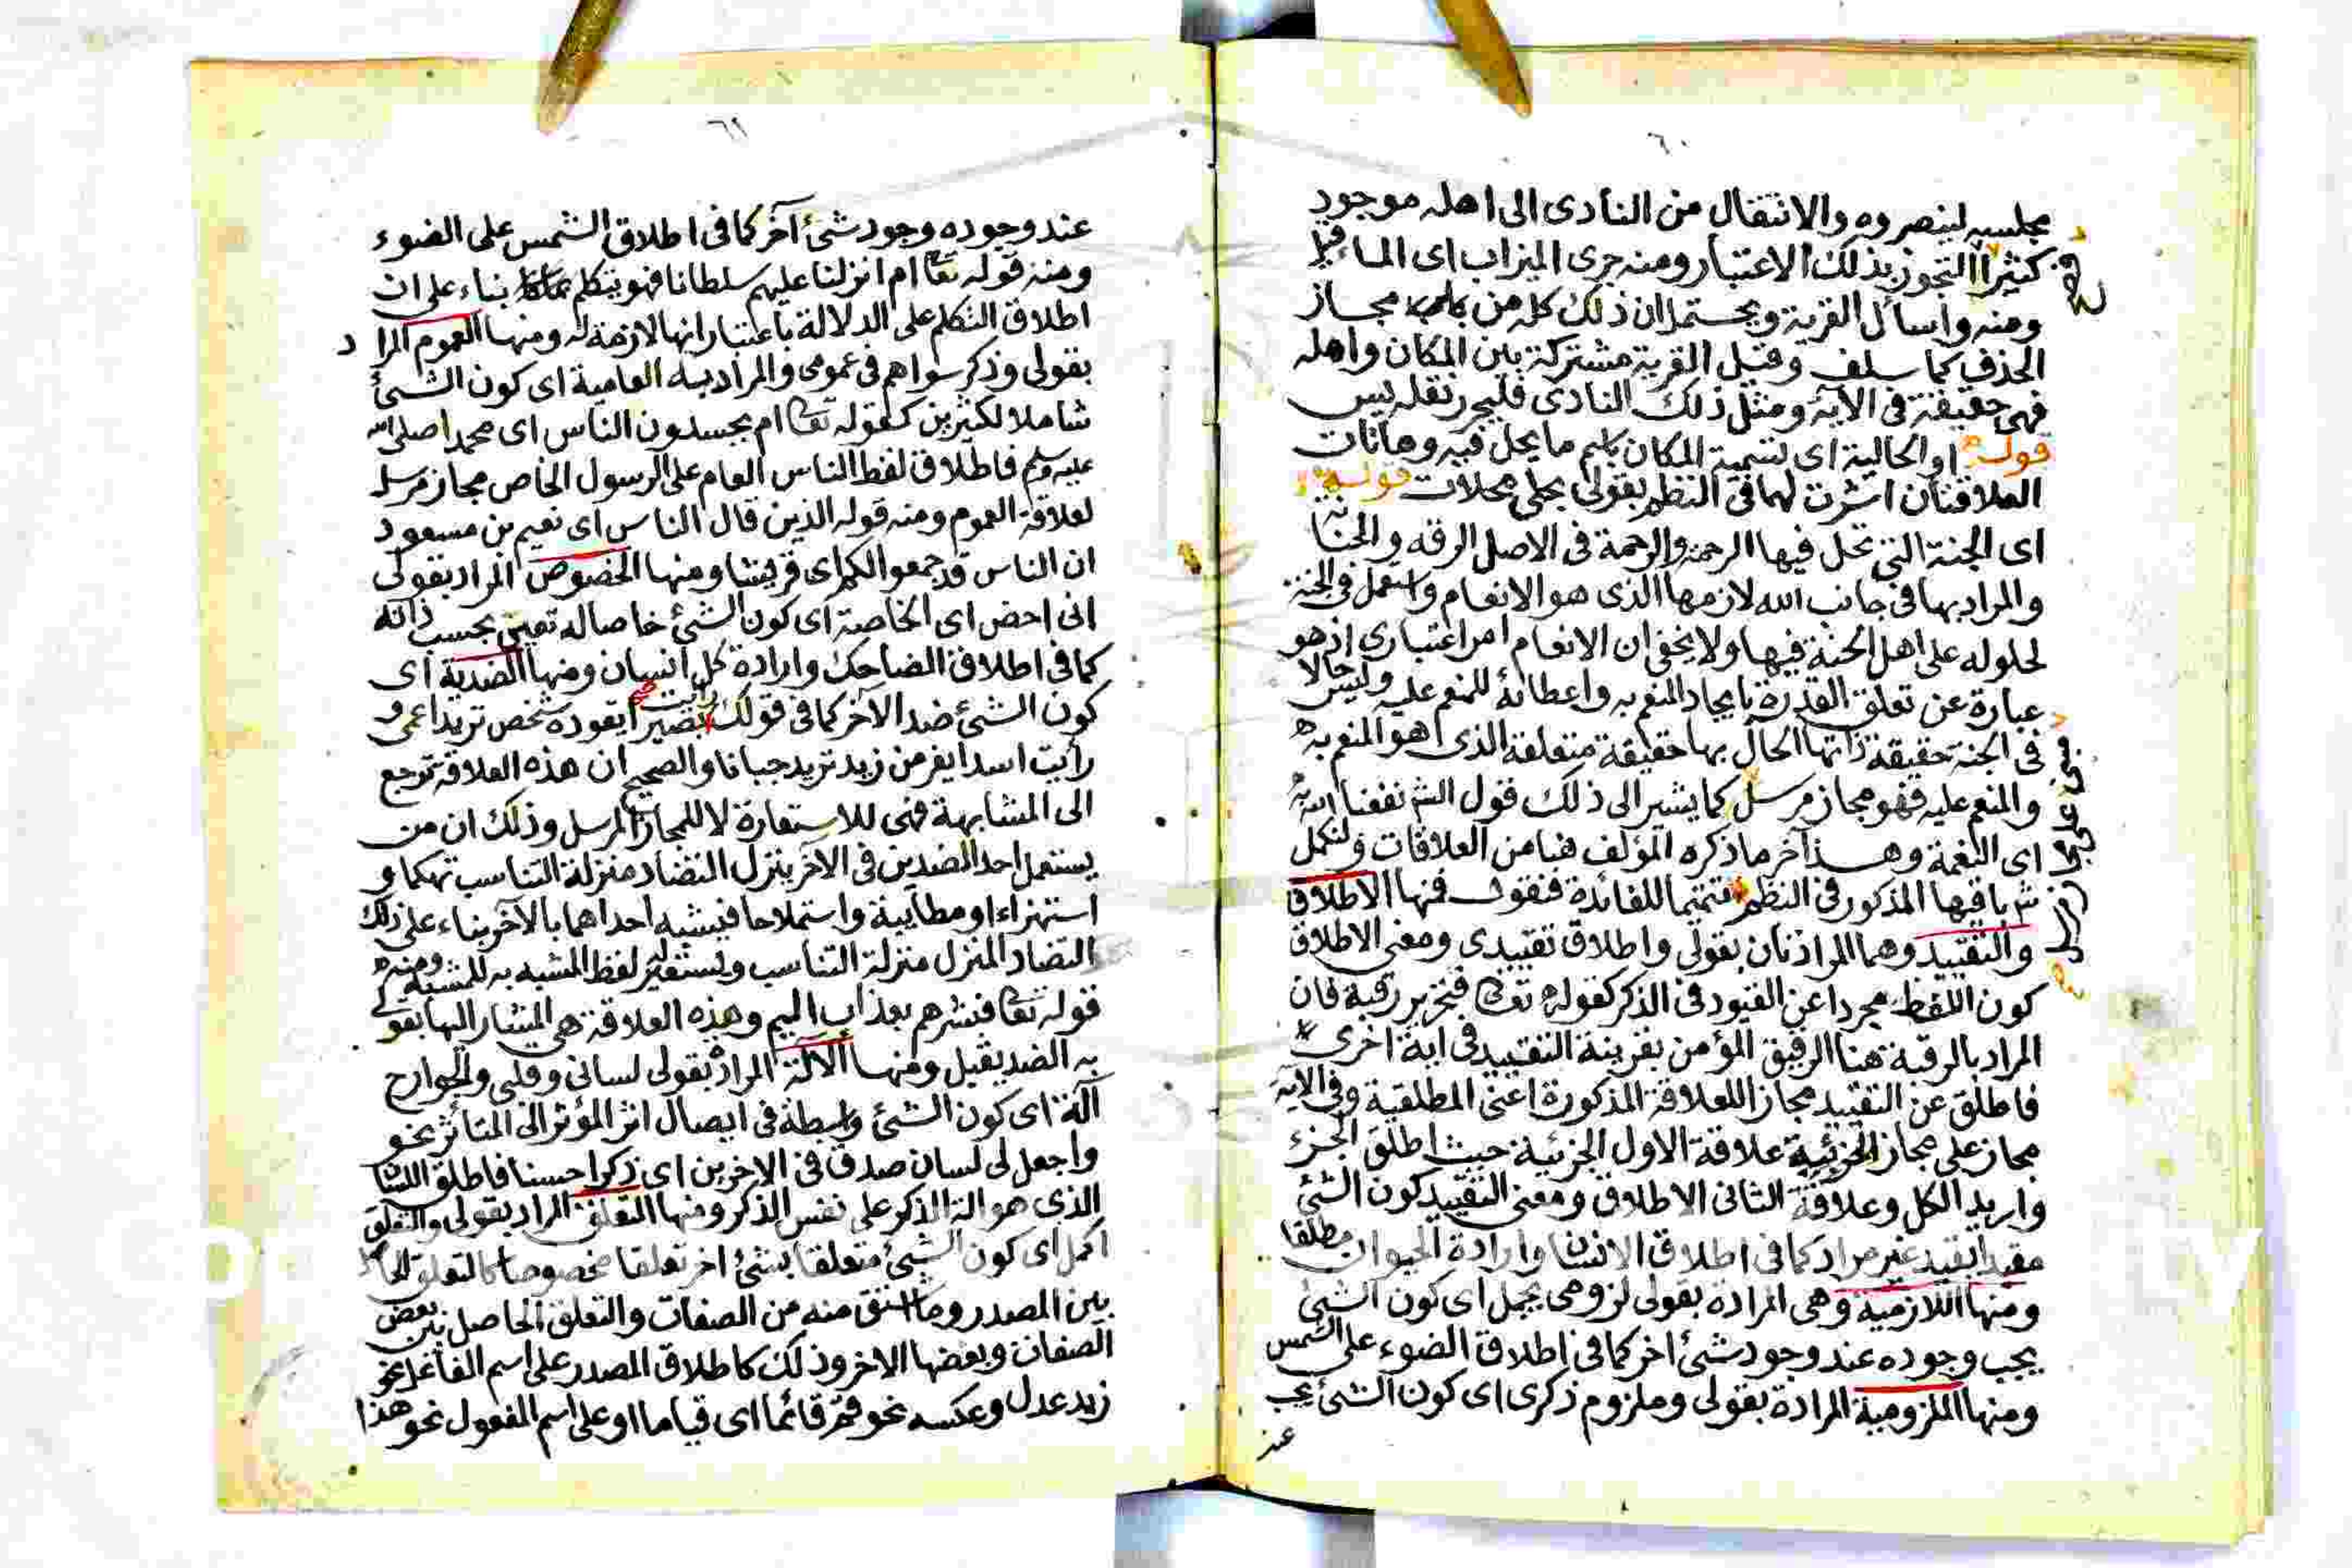 ٦٠
مجلسه لينصروه والانتقال من النادى الى اهله موجود
كثيرا التجوز بذلك الاعتبار ومنه جرى الميزاب اى الماء فيه
ومنه واسأل القرية ويحتمل ان ذلك كله من مجاز
الحذف كما سلف وقيل القرية مشتركة بين المكان واهله
فهى حقيقة فى الآية ومثل ذلك النادى فليحرر نقله يس
قوله او الحالية اى تسمية المكان باسم ما يحل فيه وهاتان
العلاقتان اشرت لهما فى النظم بقولى محلى محلات قوله
اى الجنة التى تحل فيها الرحمة والرحمة فى الاصل الرقة والحنانة
والمراد بها فى جانب الله لازمها الذى هو الانعام واستعمل فى الجنة
لحلوله على اهل الجنة فيها ولا يخفى ان الانعام امر اعتبارى اذ هو
عبارة عن تعلق القدرة بايجاد المنعم به واعطائه للمنعم عليه وليس حالا
فى الجنة حقيقة ذاتها الحال بها حقيقة متعلقه الذى هو المنعم به
والمنعم عليه فهو مجاز مرسل كما يشير الى ذلك قول الش نفعنا الله به
اى النعمة وهذا آخر ما ذكره المؤلف هنا من العلاقات ولنكمل
ش باقيها المذكور فى النظم تتميما للفائدة فنقول فمنها الاطلاق
والتقييد وهما المرادتان بقولى واطلاق تقييدى ومعنى الاطلاق
كون اللفظ مجردا عن القيود فى الذكر كقوله تعا فتحرير رقبة فان
المراد بالرقبة هنا الرقيق المؤمن بقرينة التقييد فى اية اخرى
فاطلق عن التقييد مجازا للعلاقة المذكورة اعنى المطلقية وفى الاية
مجاز على مجاز الجزئية علاقة الاول الجزئية حيث اطلق الجزء
واريد الكل وعلاقة الثانى الاطلاق ومعنى التقييد كون الشئ
مقيدا بقيد غير مراد كما فى اطلاق الانسان وارادة الحيوان مطلقا
ومنها اللازمية وهى المرادة بقولى لزومى يجمل اى كون الشئ
يجب وجوده عند وجود شئ اخر كما فى اطلاق الضوء على الشمس
ومنها الملزومية المرادة بقولى وملزوم ذكرى اى كون الشئ يجب
عند
٦١
عند وجوده وجود شئ آخر كما فى اطلاق الشمس على الضوء
ومنه قوله تعا ام انزلنا عليهم سلطانا فهو يتكلم بناء على ان
اطلاق التكلم على الدلالة باعتبار انها لازمة له ومنها العموم المراد
بقولى وذكر سواهم فى عمومى والمراد به العامية اى كون الشئ
شاملا لكثيرين كقوله تعا ام يحسدون الناس اى محمدا صلى الله
عليه وسلم فاطلاق لفظ الناس العام على الرسول الخاص مجاز مرسل
لعلاقة العموم ومنه قوله الذين قال الناس اى نعيم بن مسعود
ان الناس قد جمعوا لكم اى قريشا ومنها الخصوص المراد بقولى
انى احض اى الخاصة اى كون الشئ خاصا له تعين بحسب ذاته
كما فى اطلاق الضاحك وارادة كل انسان ومنها الضدية اى
كون الشئ ضد الآخر كما فى قولك رأيت بصيرا يقوده شخص تريد اعمى و
رأيت اسدا يفر من زيد تريد جبانا والصحيح ان هذه العلاقة ترجع
الى المشابهة فهى للاستعارة لا للمجاز المرسل وذلك ان من
يستعمل احد الضدين فى الآخر ينزل التضاد منزلة التناسب تهكما و
استهزاء او مطايبة واستملاحا فيشبه احداهما بالآخر بناء على ذلك
التضاد المنزل منزلة التناسب ويستعير لفظ المشبه به للمشبه ومنه
قوله تعا فبشرهم بعذاب اليم وهذه العلاقة هى المشار اليها بقولى
به الضد يقبل ومنها الآلة المراد بقولى لسانى وقلبى والجوارح
آلة اى كون الشئ واسطة فى ايصال اثر المؤثر الى المتأثر نحو
واجعل لى لسان صدق فى الاخرين اى ذكرا حسنا فاطلق اللسان
الذى هو الة الذكر على نفس الذكر ومنها التعلق المراد بقولى والتعلق
اكمل اى كون الشئ متعلقا بشئ اخر تعلقا مخصوصا كالتعلق الحاصل
بين المصدر وما اشتق منه من الصفات والتعلق الحاصل بين بعض
الصفات وبعضها الاخر وذلك كاطلاق المصدر على اسم الفاعل نحو
زيد عدل وعكسه نحو قم قائما اى قياما او على اسم المفعول نحو هذا